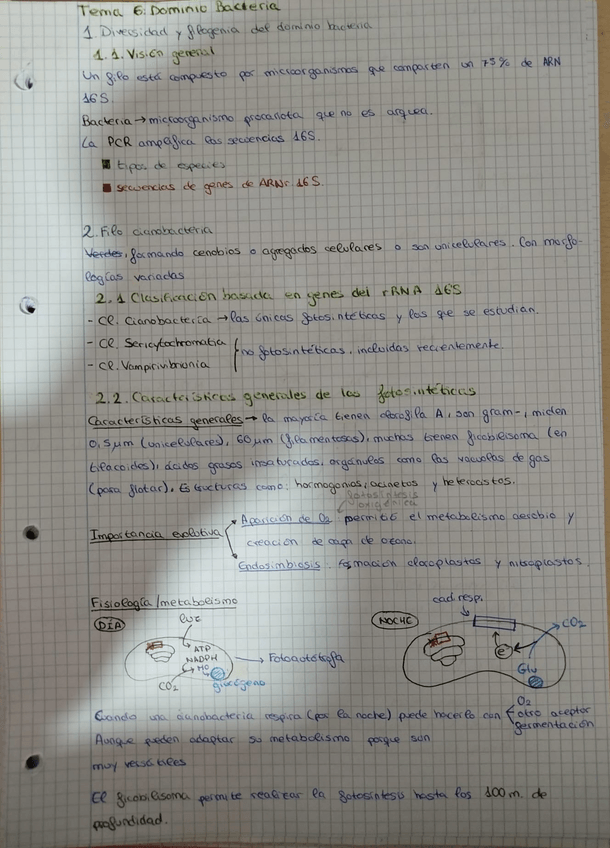 Tema 6: Dominio Bacteria
1. Diversidad y filogenia del dominio bacteria
1.1. Visión general
Un filo está compuesto por microorganismos que comparten un 75% de ARN
16S.
Bacteria → microorganismo procariota que no es arquea.
La PCR amplifica las secuencias 16S.
tipos de especies
secuencias de genes de ARNr 16S.
2. Filo cianobacteria
Verdes, formando cenobios o agregados celulares o son unicelulares. Con morfo-
logías variadas
2.1 Clasificación basada en genes del rRNA 16S
- Cl. Cianobacteria → las únicas fotosintéticas y las que se estudian.
- Cl. Sericytochromatia
no fotosintéticas, incluidas recientemente.
- Cl. Vampirivibrionia
2.2. Características generales de las fotosintéticas
Características generales → la mayoría tienen clorofila A, son gram-, miden
0,5 μm (unicelulares), 60 μm (filamentosas), muchas tienen ficobilisoma (en
tilacoides), ácidos grasos insaturados, orgánulos como las vacuolas de gas
(para flotar). Estructuras como: hormogonios, acinetos y heterocistos.
fotosíntesis
oxigénica
Aparición de O2 permitió el metabolismo aerobio y
Importancia evolutiva
creación de capa de ozono.
Endosimbiosis: formación cloroplastos y nitroplastos.
Fisiología/metabolismo
cad. resp.
DÍA
luz
NOCHE
CO2
ATP
NADPH
→ Fotoautótrofa
e-
MO
Glu
CO2
glucógeno
O2
Cuando una cianobacteria respira (por la noche) puede hacerlo con
otro aceptor
fermentación
Aunque pueden adaptar su metabolismo porque son
muy versátiles
El ficobilisoma permite realizar la fotosíntesis hasta los 100 m de
profundidad.